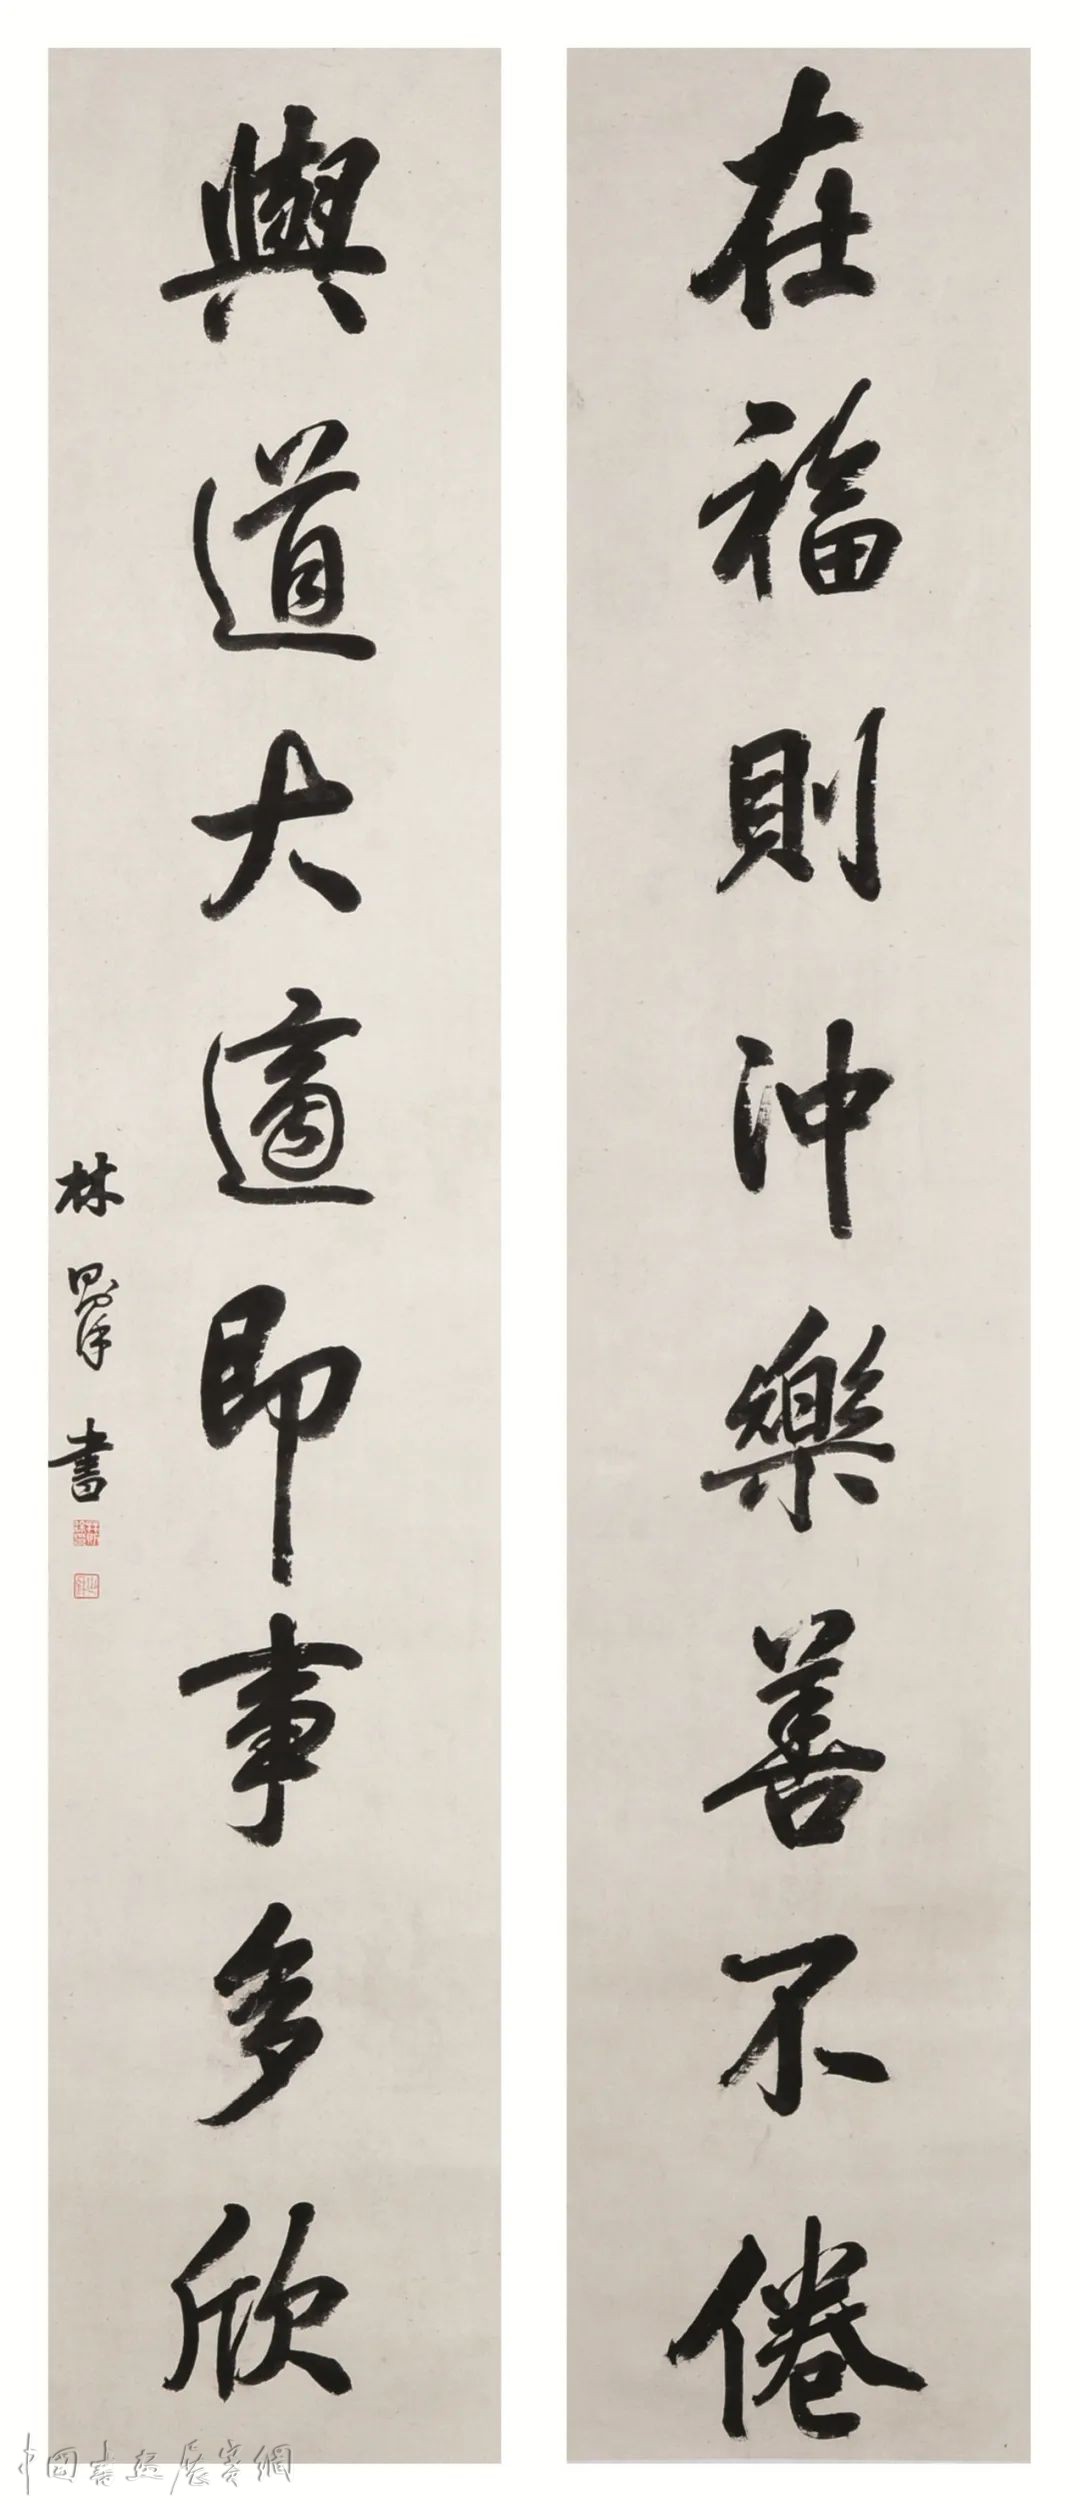 在福則沖樂善不倦
與道大適即事多欣
林則徐書
中國書畫展賽網